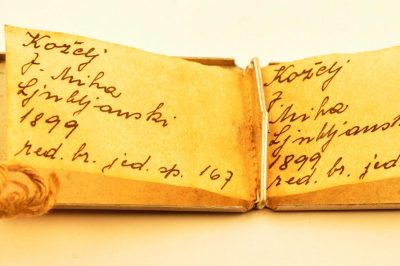 Koželj
J. Miha
Ljubljanski
1899
red. br. jed. sp. 167
Koželj
J.
Miha
Ljubljansk
1899
red. br. jed